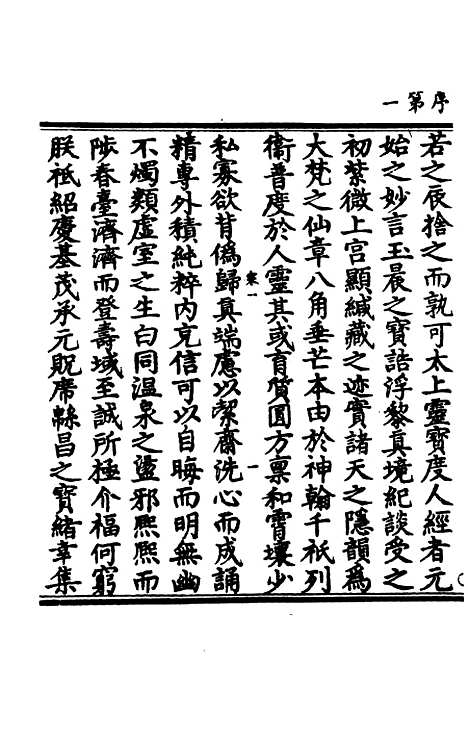 序第一
若之辰捨之而孰可太上靈寶度人經者元
始之妙言玉晨之寶誥浮黎真境紀談受之
初紫微上宮顯緘藏之迹實諸天之隱韻爲
大梵之仙章八角垂芒本由於神翰千祇列
衞普度於人靈其或育質圓方稟和霄壤少
私寡欲背僞歸真端慮以潔齋洗心而成誦
精專外積純粹内充信可以自晦而明無幽
不燭類虛室之生白同温泉之盪邪熙熙而
陟春臺濟濟而登壽域至誠所極介福何窮
朕祇紹慶基茂承元貺席緜昌之寶緒幸集